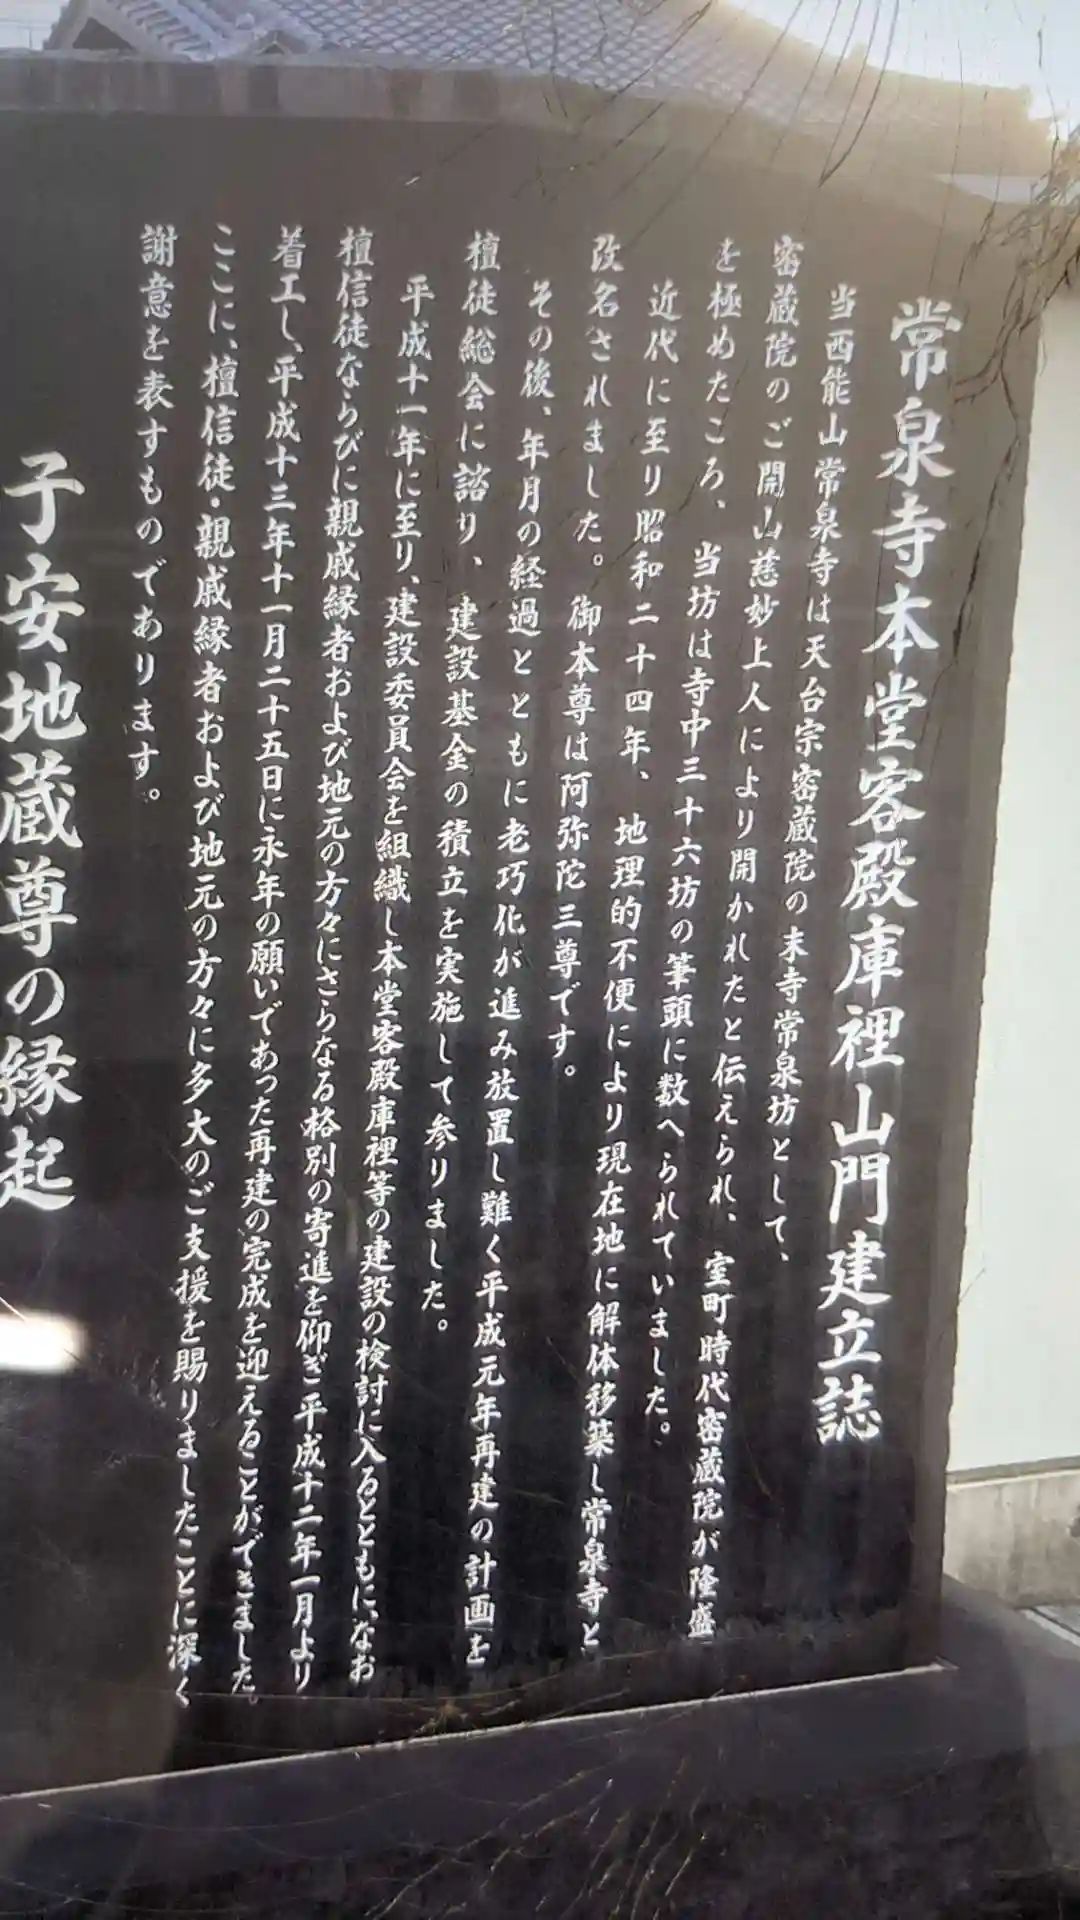 常泉寺本堂客殿庫裡山門建立誌
当西能山常泉寺は天台宗密蔵院の末寺常泉坊として、
密蔵院のご開山慈妙上人により開かれたと伝えられ、室町時代密蔵院が隆盛
を極めたころ、当坊は寺中三十六坊の筆頭に数へられていました。
近代に至り昭和二十四年、地理的不便により現在地に解体移築し常泉寺と
改名されました。御本尊は阿弥陀三尊です。
その後、年月の経過とともに老巧化が進み放置し難く平成元年再建の計画を
檀徒総会に諮り、建設基金の積立を実施して参りました。
平成十一年に至り、建設委員会を組織し本堂客殿庫裡等の建設の検討に入るとともに、なお
檀信徒ならびに親戚縁者および地元の方々にさらなる格別の寄進を仰ぎ平成十二年一月より
着工し、平成十三年十一月二十五日に永年の願いであった再建の完成を迎えることができました。
ここに、檀信徒・親戚縁者および地元の方々に多大のご支援を賜りましたことに深く
謝意を表すものであります。
子安地蔵尊の縁起